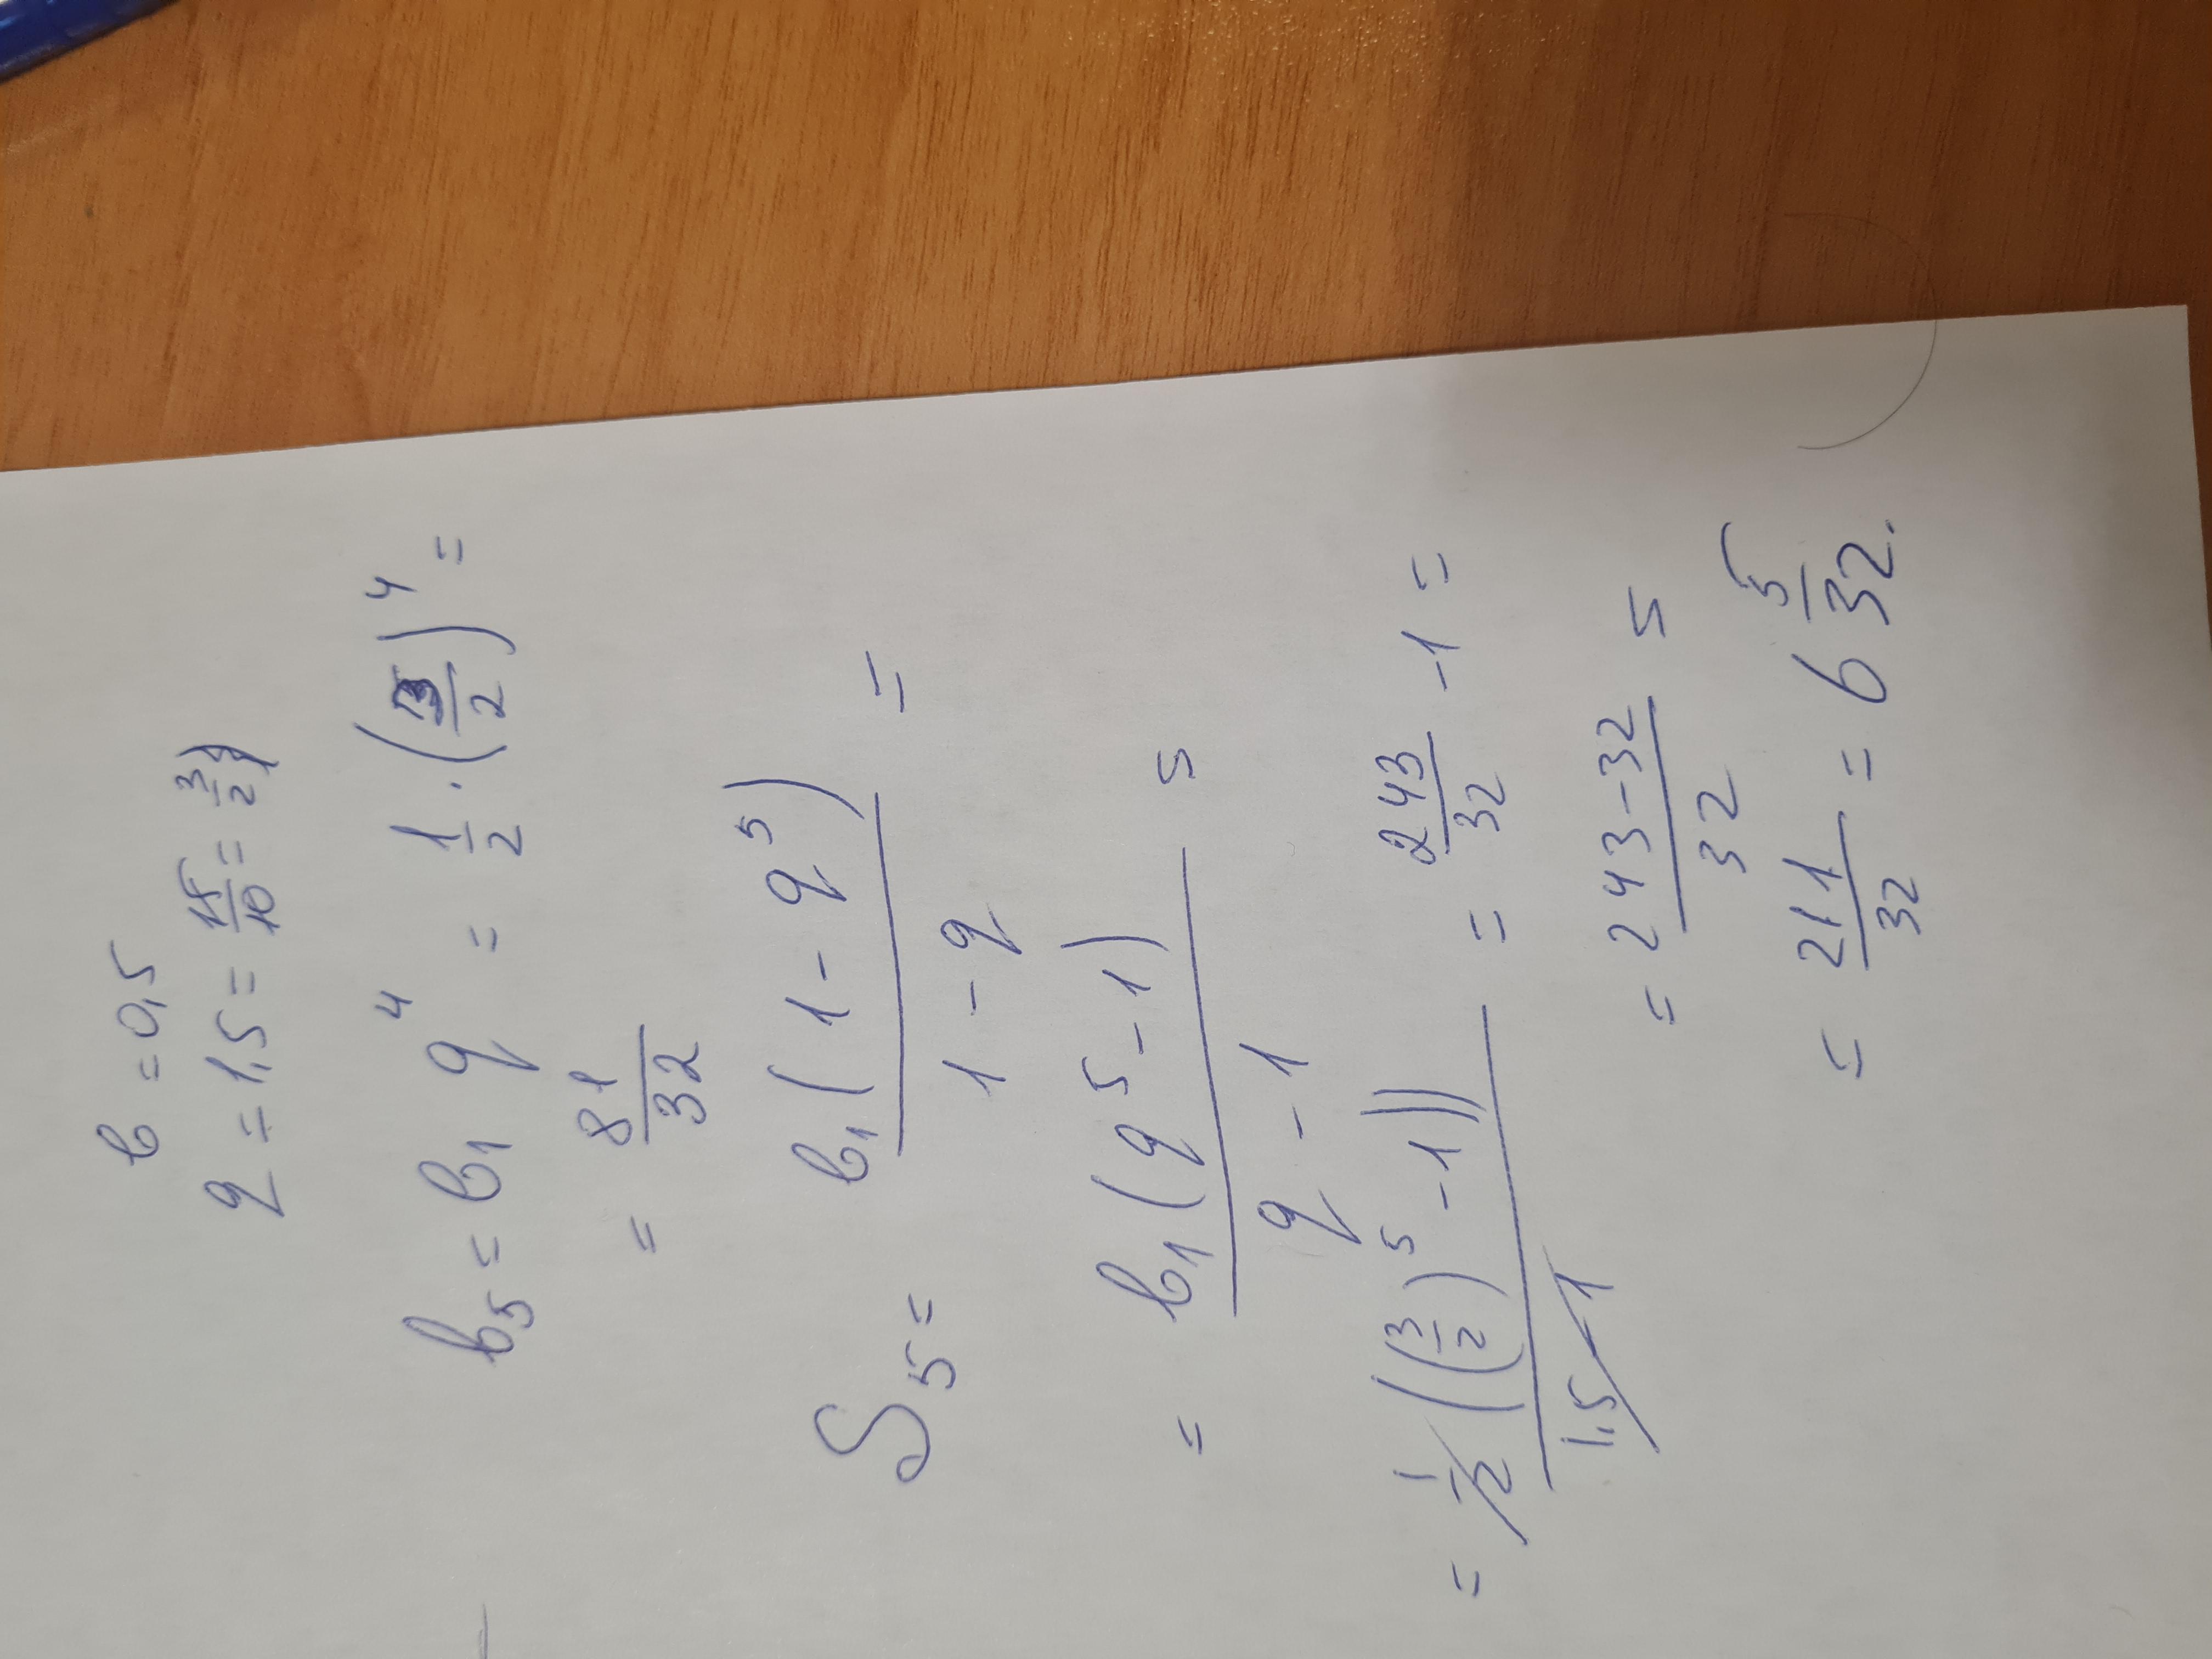 b = 0,5
q = 1,5 = 15/10 = 3/2)
b₅ = b₁ q⁴ = 1/2 · (3/2)⁴ =
= 81/32
S₅ = b₁(1 - q⁵)/1 - q =
= b₁(q⁵ - 1)/q - 1 =
= 1/2((3/2)⁵ - 1))/1,5 - 1 = 243/32 - 1 =
= 243 - 32/32 =
= 211/32 = 6 5/32.